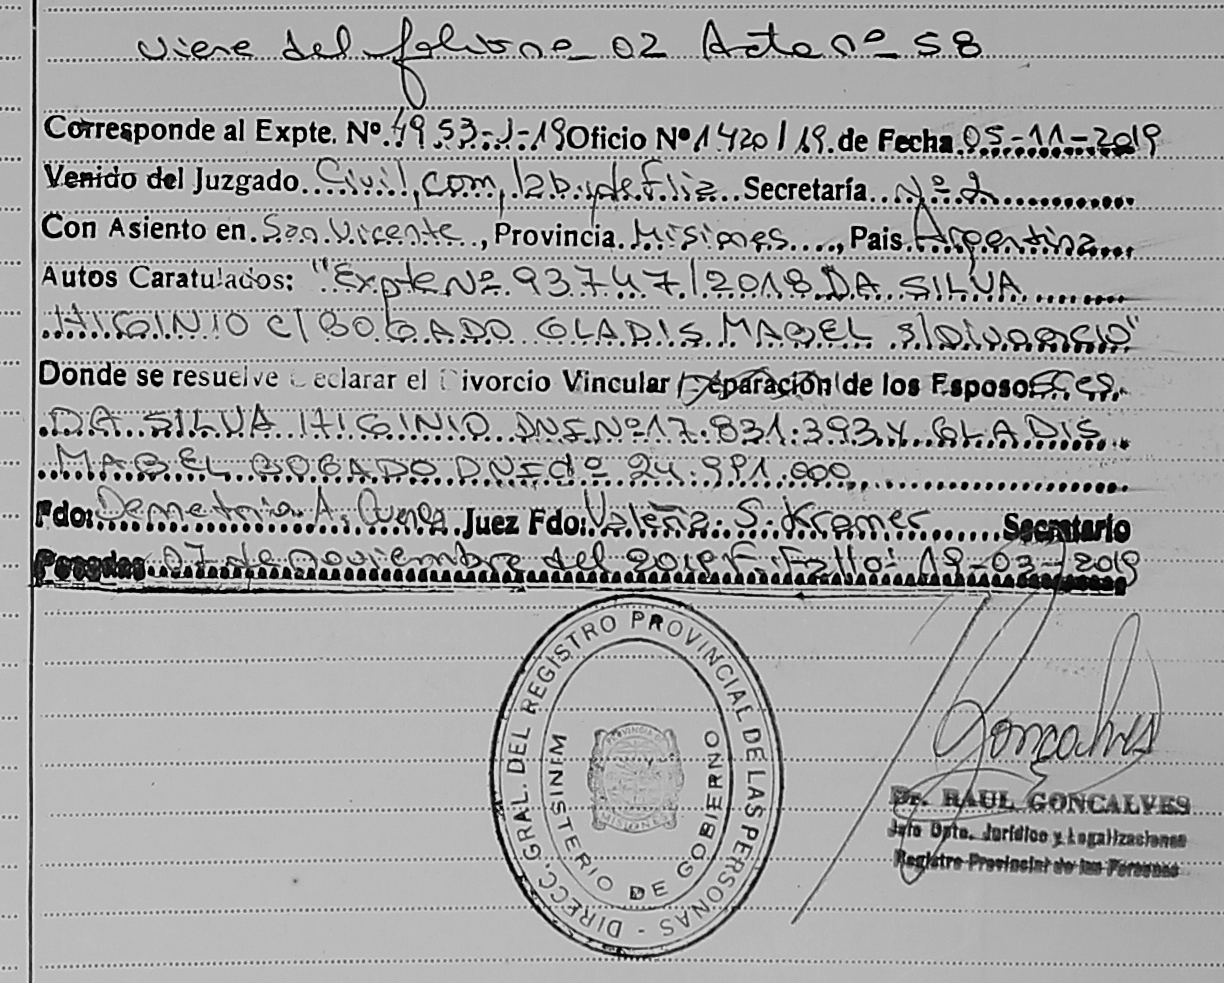 viene del folio nº 02 Acta nº 58
Corresponde al Expte. Nº 4953-J-19 Oficio Nº 1420/19 de Fecha 05-11-2019
Venido del Juzgado Civil, com, lab. y de Flia Secretaría Nº 2
Con Asiento en San Vicente, Provincia Misiones, Pais Argentina
Autos Caratulados: "Expte Nº 93747/2018 DA SILVA
HIGINIO C/ BOGADO GLADIS MABEL s/Divorcio"
Donde se resuelve Declarar el Divorcio Vincular (Separación) de los Esposos
DA SILVA HIGINIO DNI Nº 17.831.393 Y GLADIS
MABEL BOGADO DNI 24.991.000
Fdo: Demetrio A. Juez Fdo: S. Kramer Secretario
Posadas 07 de noviembre del 2019 F. Fallo: 19-03-2019
DIRECC. GRAL. DEL REGISTRO PROVINCIAL DE LAS PERSONAS -
MINISTERIO DE GOBIERNO
PROVINCIA
MISIONES
Goncalves
Dr. RAUL GONCALVES
Jefe Dpto. Jurídico y Legalizaciones
Registro Provincial de las Personas